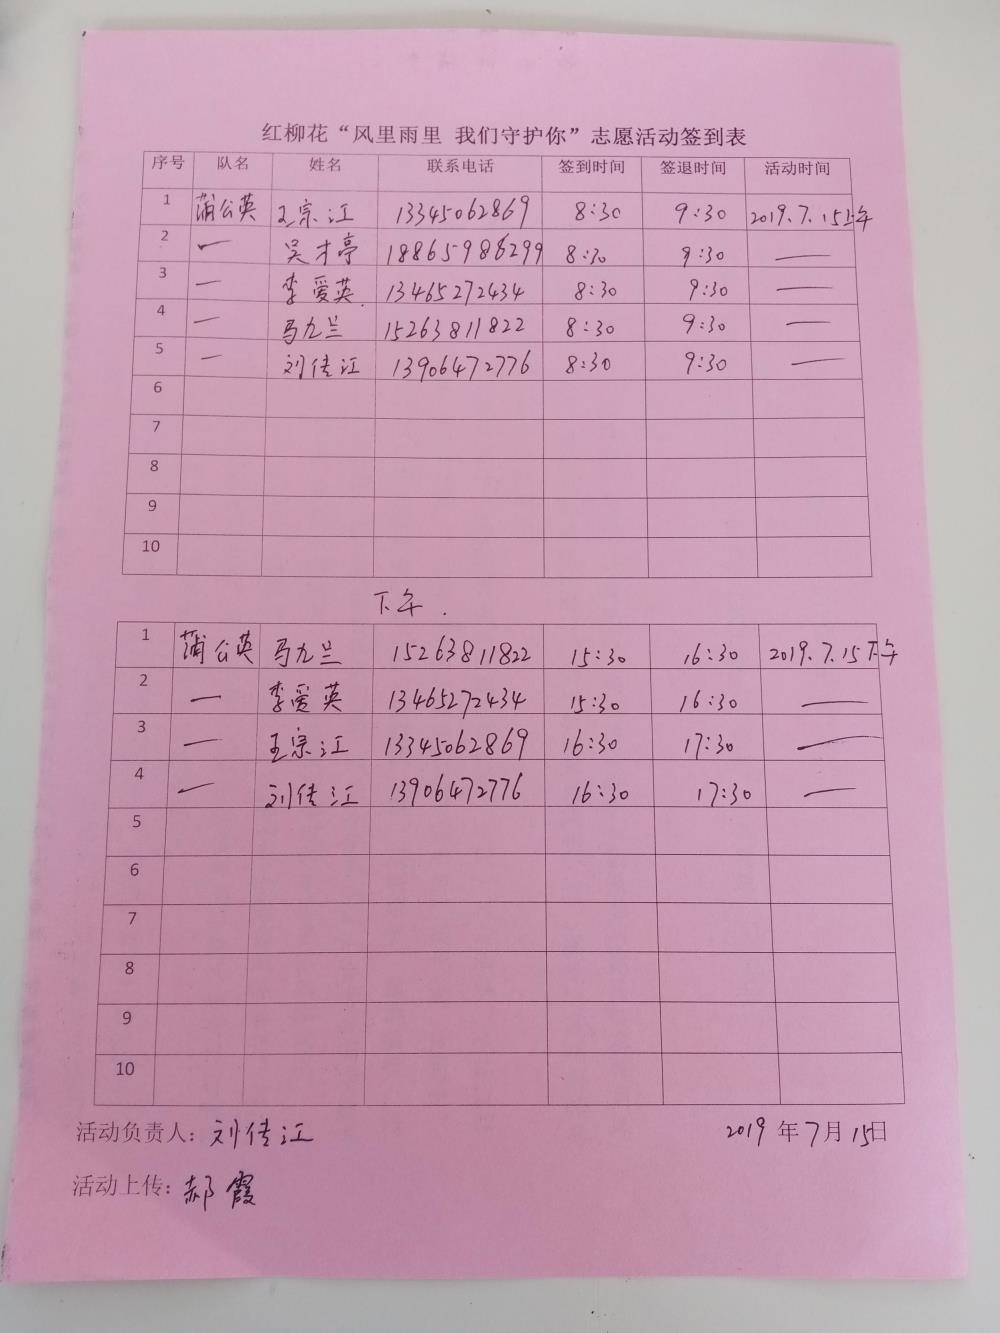 红柳花“风里雨里 我们守护你”志愿活动签到表
序号 队名 姓名 联系电话 签到时间 签退时间 活动时间
1 蒲公英 王宗江 13345062869 8:30 9:30 2019.7.15上午
2 — 吴才亭 18865986299 8:30 9:30 —
3 — 李爱英 13465272434 8:30 9:30 —
4 — 马九兰 15263811822 8:30 9:30 —
5 — 刘传江 13906472776 8:30 9:30 —
6
7
8
9
10
下午.
1 蒲公英 马九兰 15263811822 15:30 16:30 2019.7.15下午
2 — 李爱英 13465272434 15:30 16:30 —
3 — 王宗江 13345062869 16:30 17:30 —
4 — 刘传江 13906472776 16:30 17:30 —
5
6
7
8
9
10
活动负责人：刘传江 2019年7月15日
活动上传：郝霞